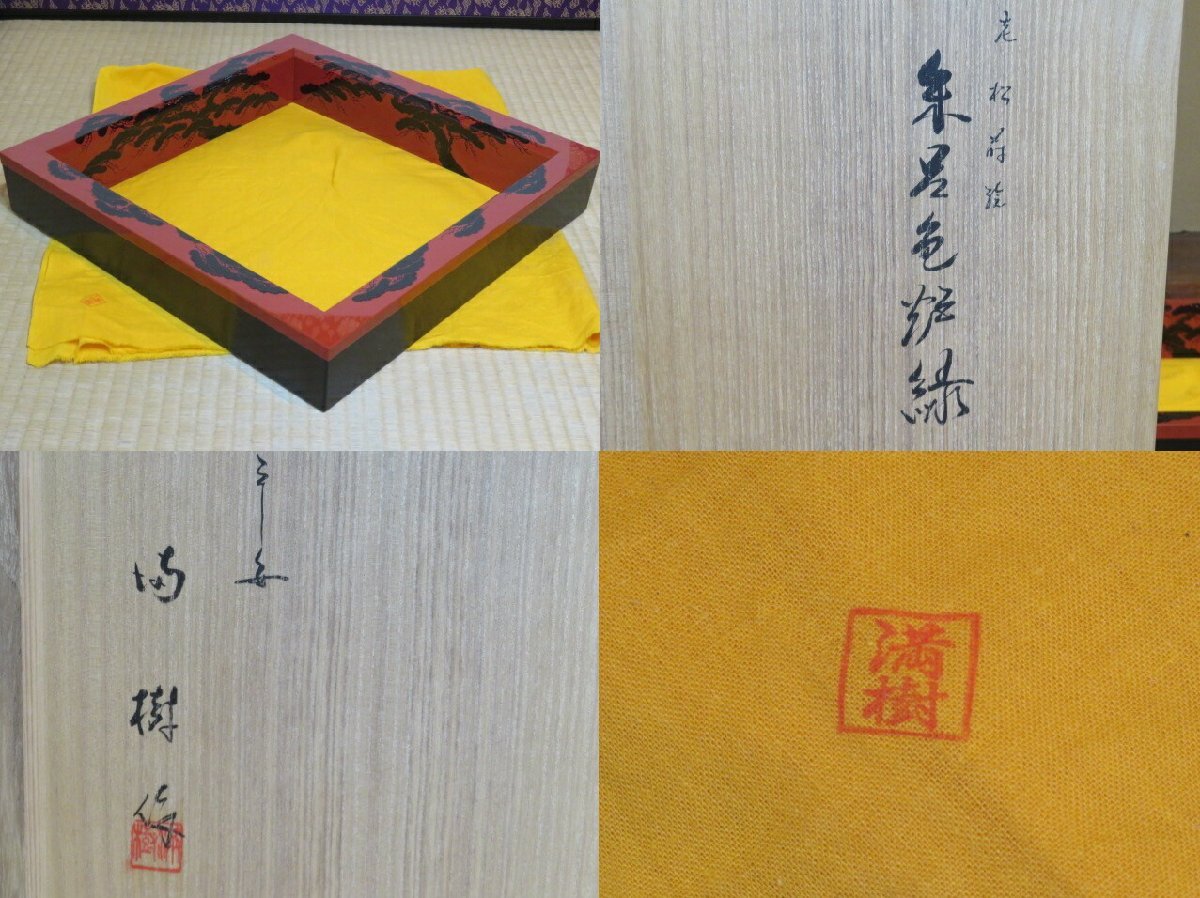 老松蒔絵
朱呂色炉縁
平安
満樹作
満樹